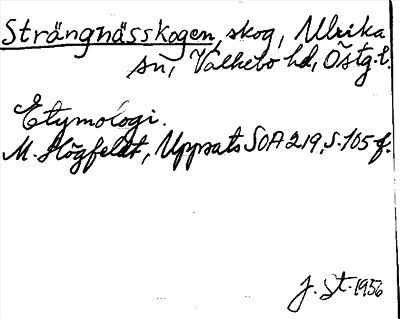 Strängnässkogen, skog, Ulrika
sn, Valkebo hd, Östg. l.
Etymologi.
M. Högfeldt, Uppsats SOA 219, s. 105 f.
J. St. 1956